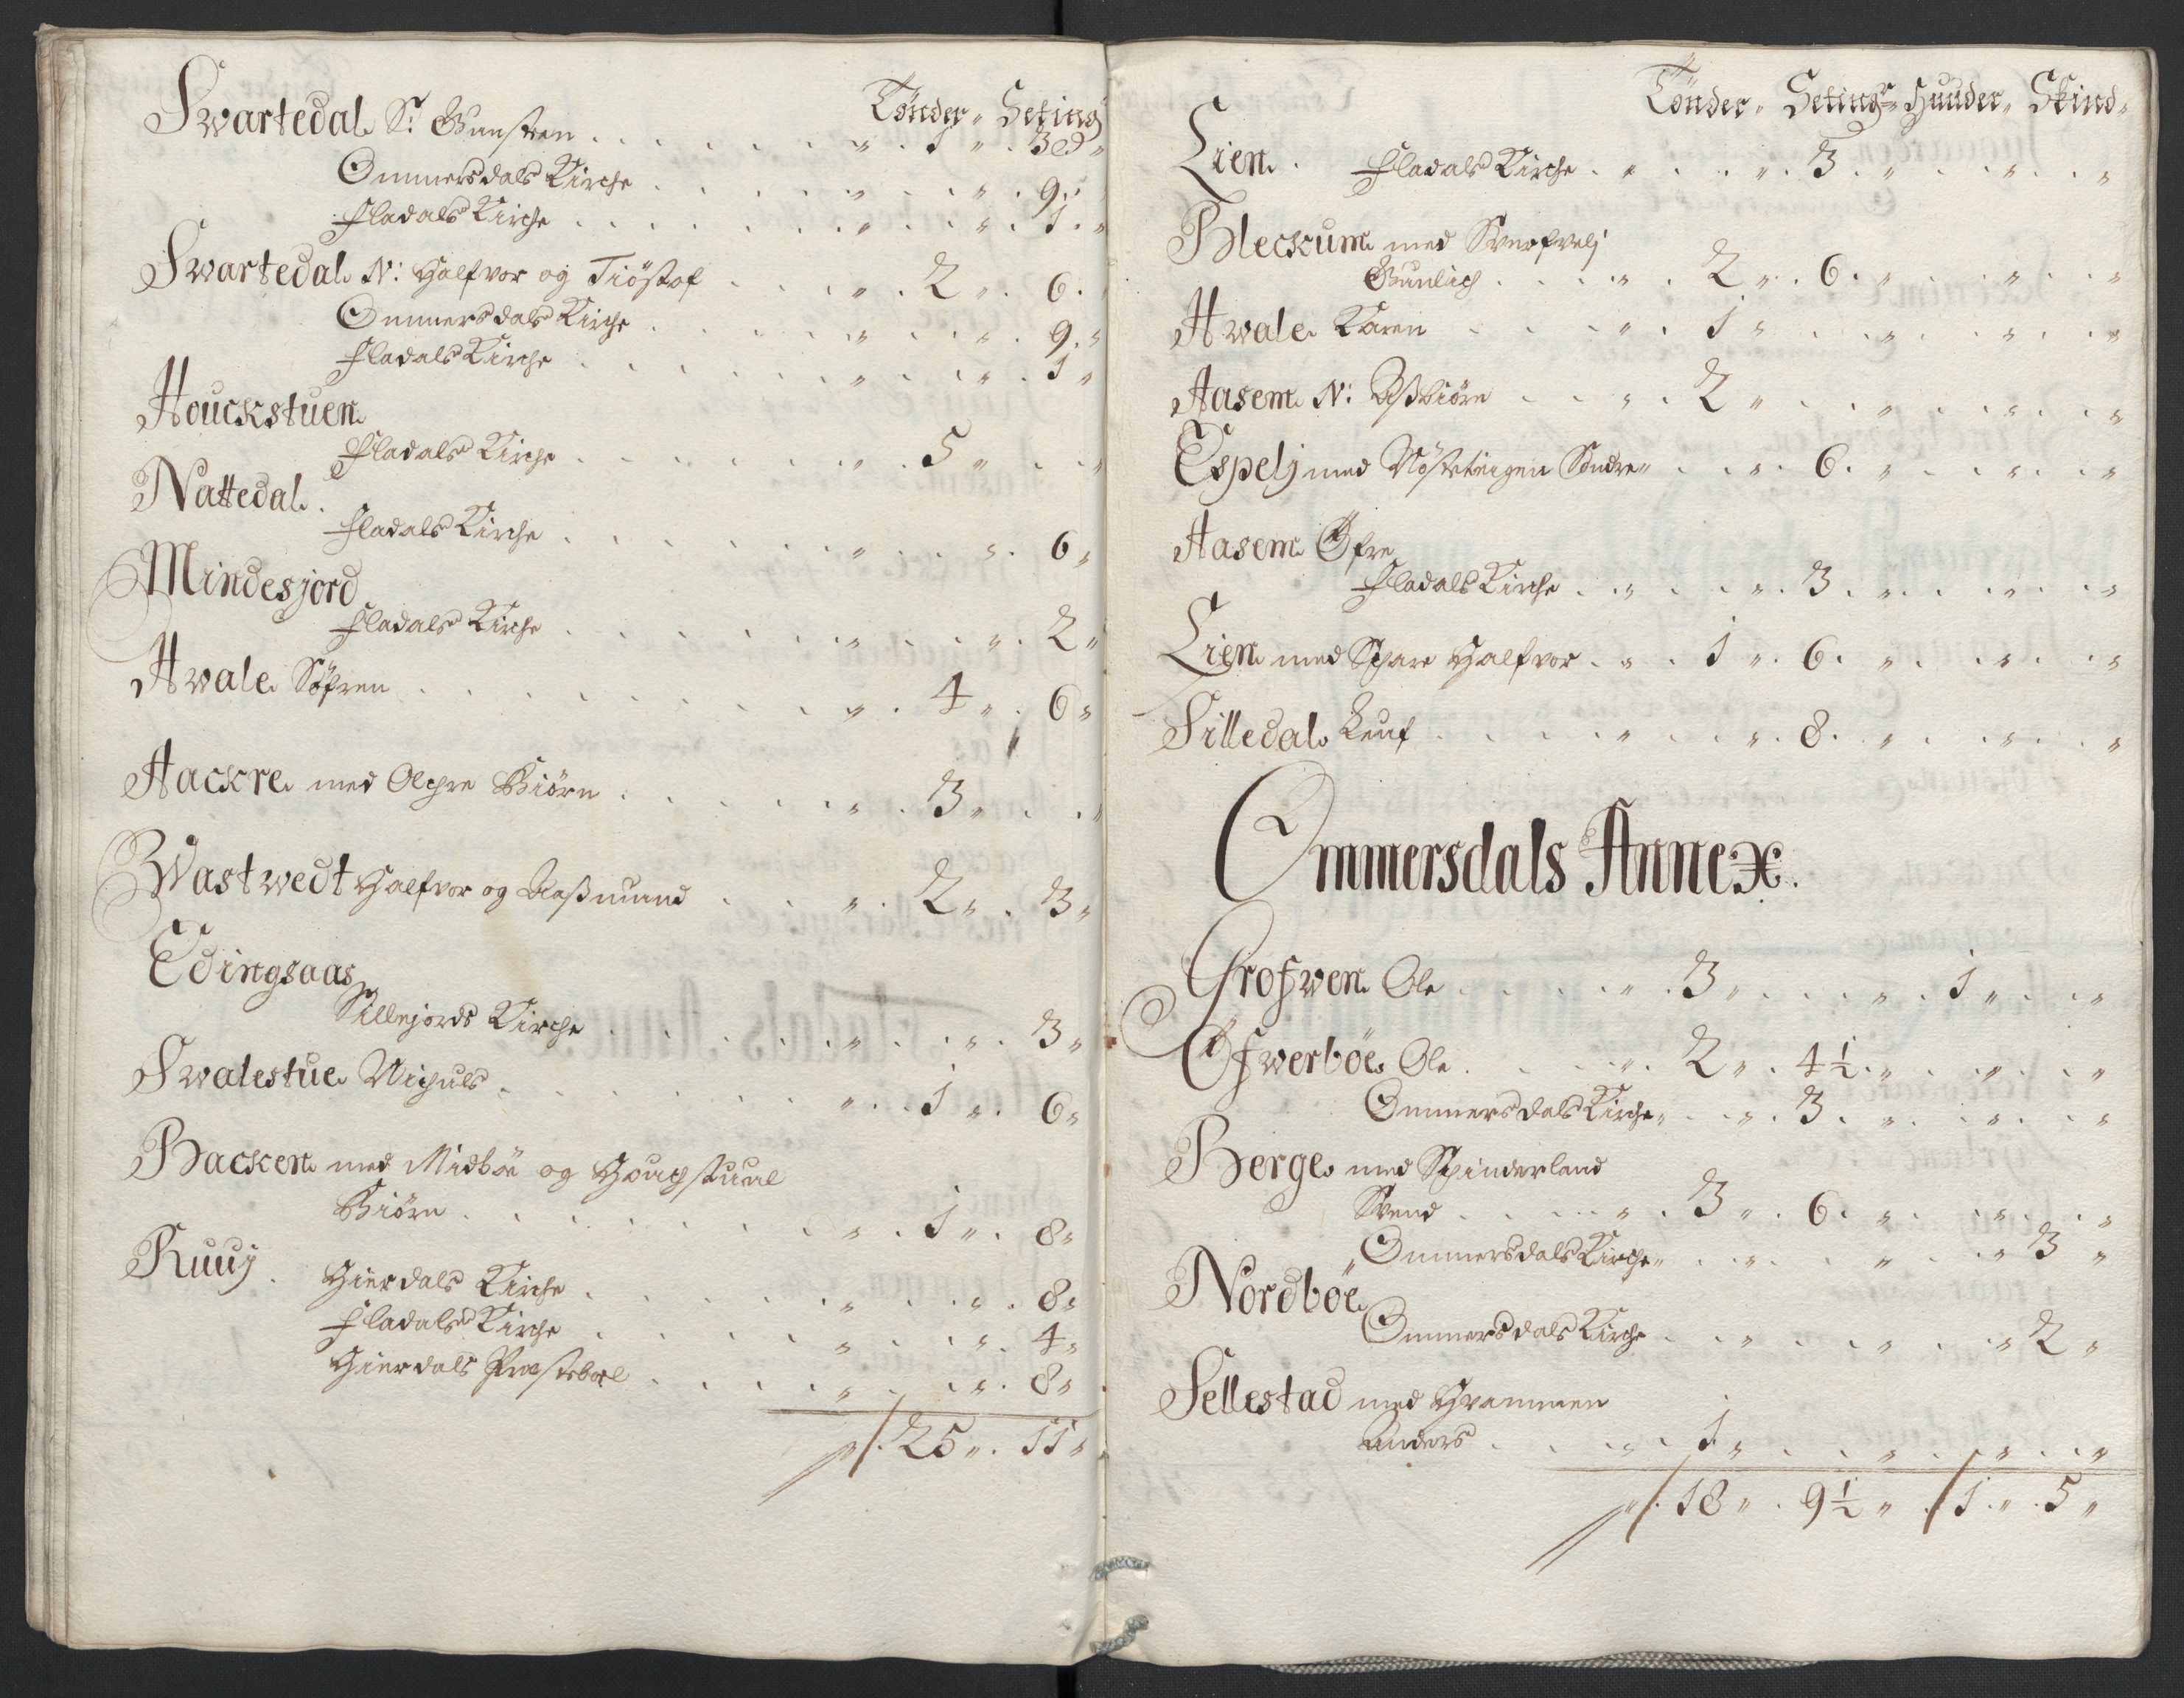 Tönder „ Seting
Swartedal S: Gunsten . . . „ . 1 „ . 3
Ommersdals Kirche . . . „ . . „ . 9 „
Fladals Kirche . . . „ . . „ . 1 „
Swartedal N: Halfvor og Tiöstof . . . „ . 2 „ . 6 „
Ommersdals Kirche . . . „ . . „ . 9 „
Fladals Kirche . . . „ . . „ . 1 „
Houckstuen
Fladals Kirche . . . „ . 5 „ . . „
Nattedal .
Fladals Kirche . . . „ . . „ . 6 „
Mindesjord
Fladals Kirche . . . „ . . „ . 2 „
Hwale Söfren . . . „ . 4 „ . 6 „
Aackre med Olchre Biörn . . . „ . 3 „ . . „
Wastwedt Halfvor og Aaßmund . . . „ . 2 „ . 3 „
Edingsaas
Sillejords Kirche . . . „ . . „ . 3 „
Swalestue Nichuls . . . „ . 1 „ . 6 „
Backen med Midböe og
Biörn . . . „ . 1 „ . 8 „
Ruuj . Hierdals Kirche . . . „ . . „ . 8 „
Fladals Kirche . . . „ . . „ . 4 „
Hierdals Præsteboel . . . „ . . „ . 8 „
„ 25 „ . 11 „
Tönder „ Seting „ Huuder „ Skind „
Lien . Fladals Kirche . „ . . „ . 3 . „ . . „ . . „
Bleckum med
Gunlich . . . „ . 2 „ . 6 . „ . . „ . . „
Hwale Karen . . . „ . 1 „ . . „ . . „ . . „
Aasem N: Aßbiörn . . „ . 2 „ . . „ . . „ . . „
Espelj med Söndre „ . . „ . 6 . „ . . „ . . „
Aasem Öfre
Fladals Kirche . „ . . „ . 3 . „ . . „ . . „
Lien med Skare Halfvor . „ . 1 „ . 6 . „ . . „ . . „
Silledal Leuf . . . „ . . „ . 8 . „ . . „ . . „
Ommersdals Annex .
Grofwen Ole . . . „ . 3 „ . . . „ . 1 „ . . „
Öfwerböe Ole . . . „ . 2 „ . 4½ . „ . . „ . . „
Ommersdals Kirche „ . . „ . 3 . „ . . „ . . „
Berge med Skinderland
Svend . . . „ . 3 „ . 6 . „ . . „ . . „
Ommersdals Kirche „ . . „ . . „ . . „ 3 „
Nordböe
Ommersdals Kirche . . „ . . . „ . . „ 2 „
Sellestad med Grammen
Anders . . . „ . 1 „ . . . „ . . „ . . „
„ 18 „ . 9½ „ . 1 „ . 5 „